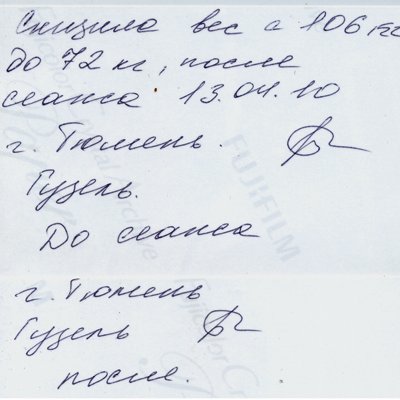 Снизила вес с 106 кг
до 72 кг, после
сеанса 13.04.10
г. Тюмень.
Гузель.
До сеанса
FUJIFILM
г. Тюмень
Гузель
после.